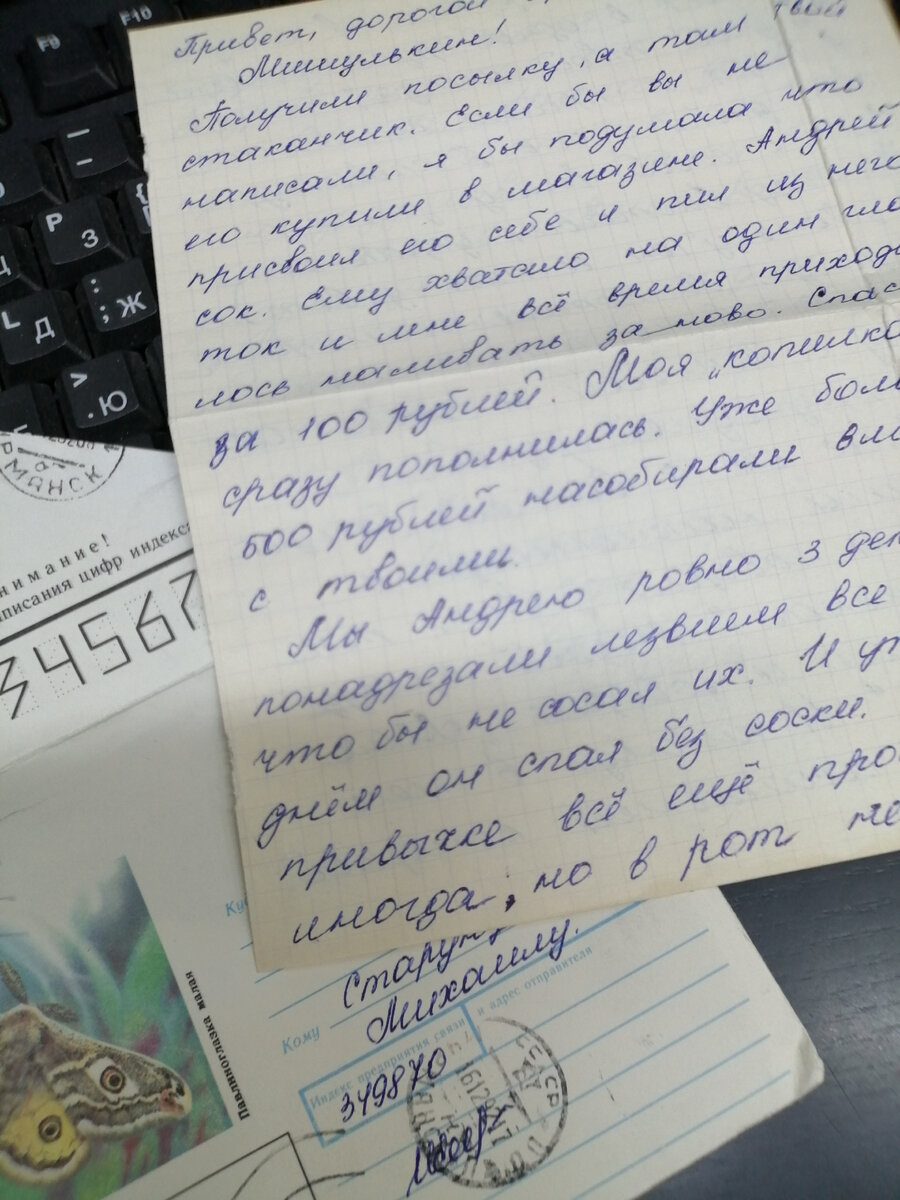 F9
F10
Р
З
Д
Ж
Ю
Привет, дорогой
Мишулькин!
Получили посылку, а там твой
стаканчик. Если бы вы не
написали, я бы подумала что
его купили в магазине. Андрей
присвоил его себе и пил из него
сок. Ему хватало на один гло
ток и мне всё время приходи
лось наливать заново. Спас
за 100 рублей. Моя „копилка
сразу пополнилась. Уже бол
500 рублей насобирали вм
с твоими.
Мы Андрею ровно 3 де
понадрезали лезвием все
что бы не сосал их. И у
днём он спал без соски.
привычке всё ещё про
иногда, но в рот не
МАНСК
нимание!
писания цифр индекса
34567
Павлиноглазка малая
Ку
Кому
Стару
Михаилу.
Индекс предприятия связи и адрес отправителя
349870
СССР